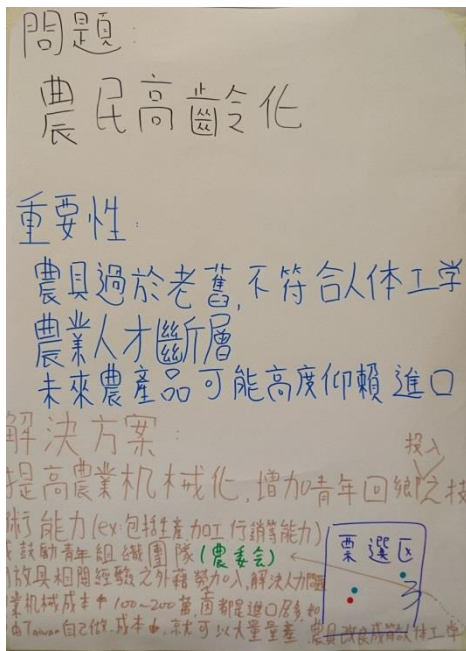 問題:
農民高齡化
重要性:
農具過於老舊,不符合人体工学
農業人才斷層
未來農產品可能高度仰賴進口
解決方案:
投入
提高農業机械化,增加青年回鄉之技
術能力(ex:包括生產,加工行銷等能力)
鼓勵青年組織團隊(農委会)
放具相關經驗之外籍勞力加入,解決人力問題
業机械成本 100~200萬,因都是進口居多,如
由Taiwan自己做,成本 ,就可以大量量產,農具改良成符合人体工学
票選区